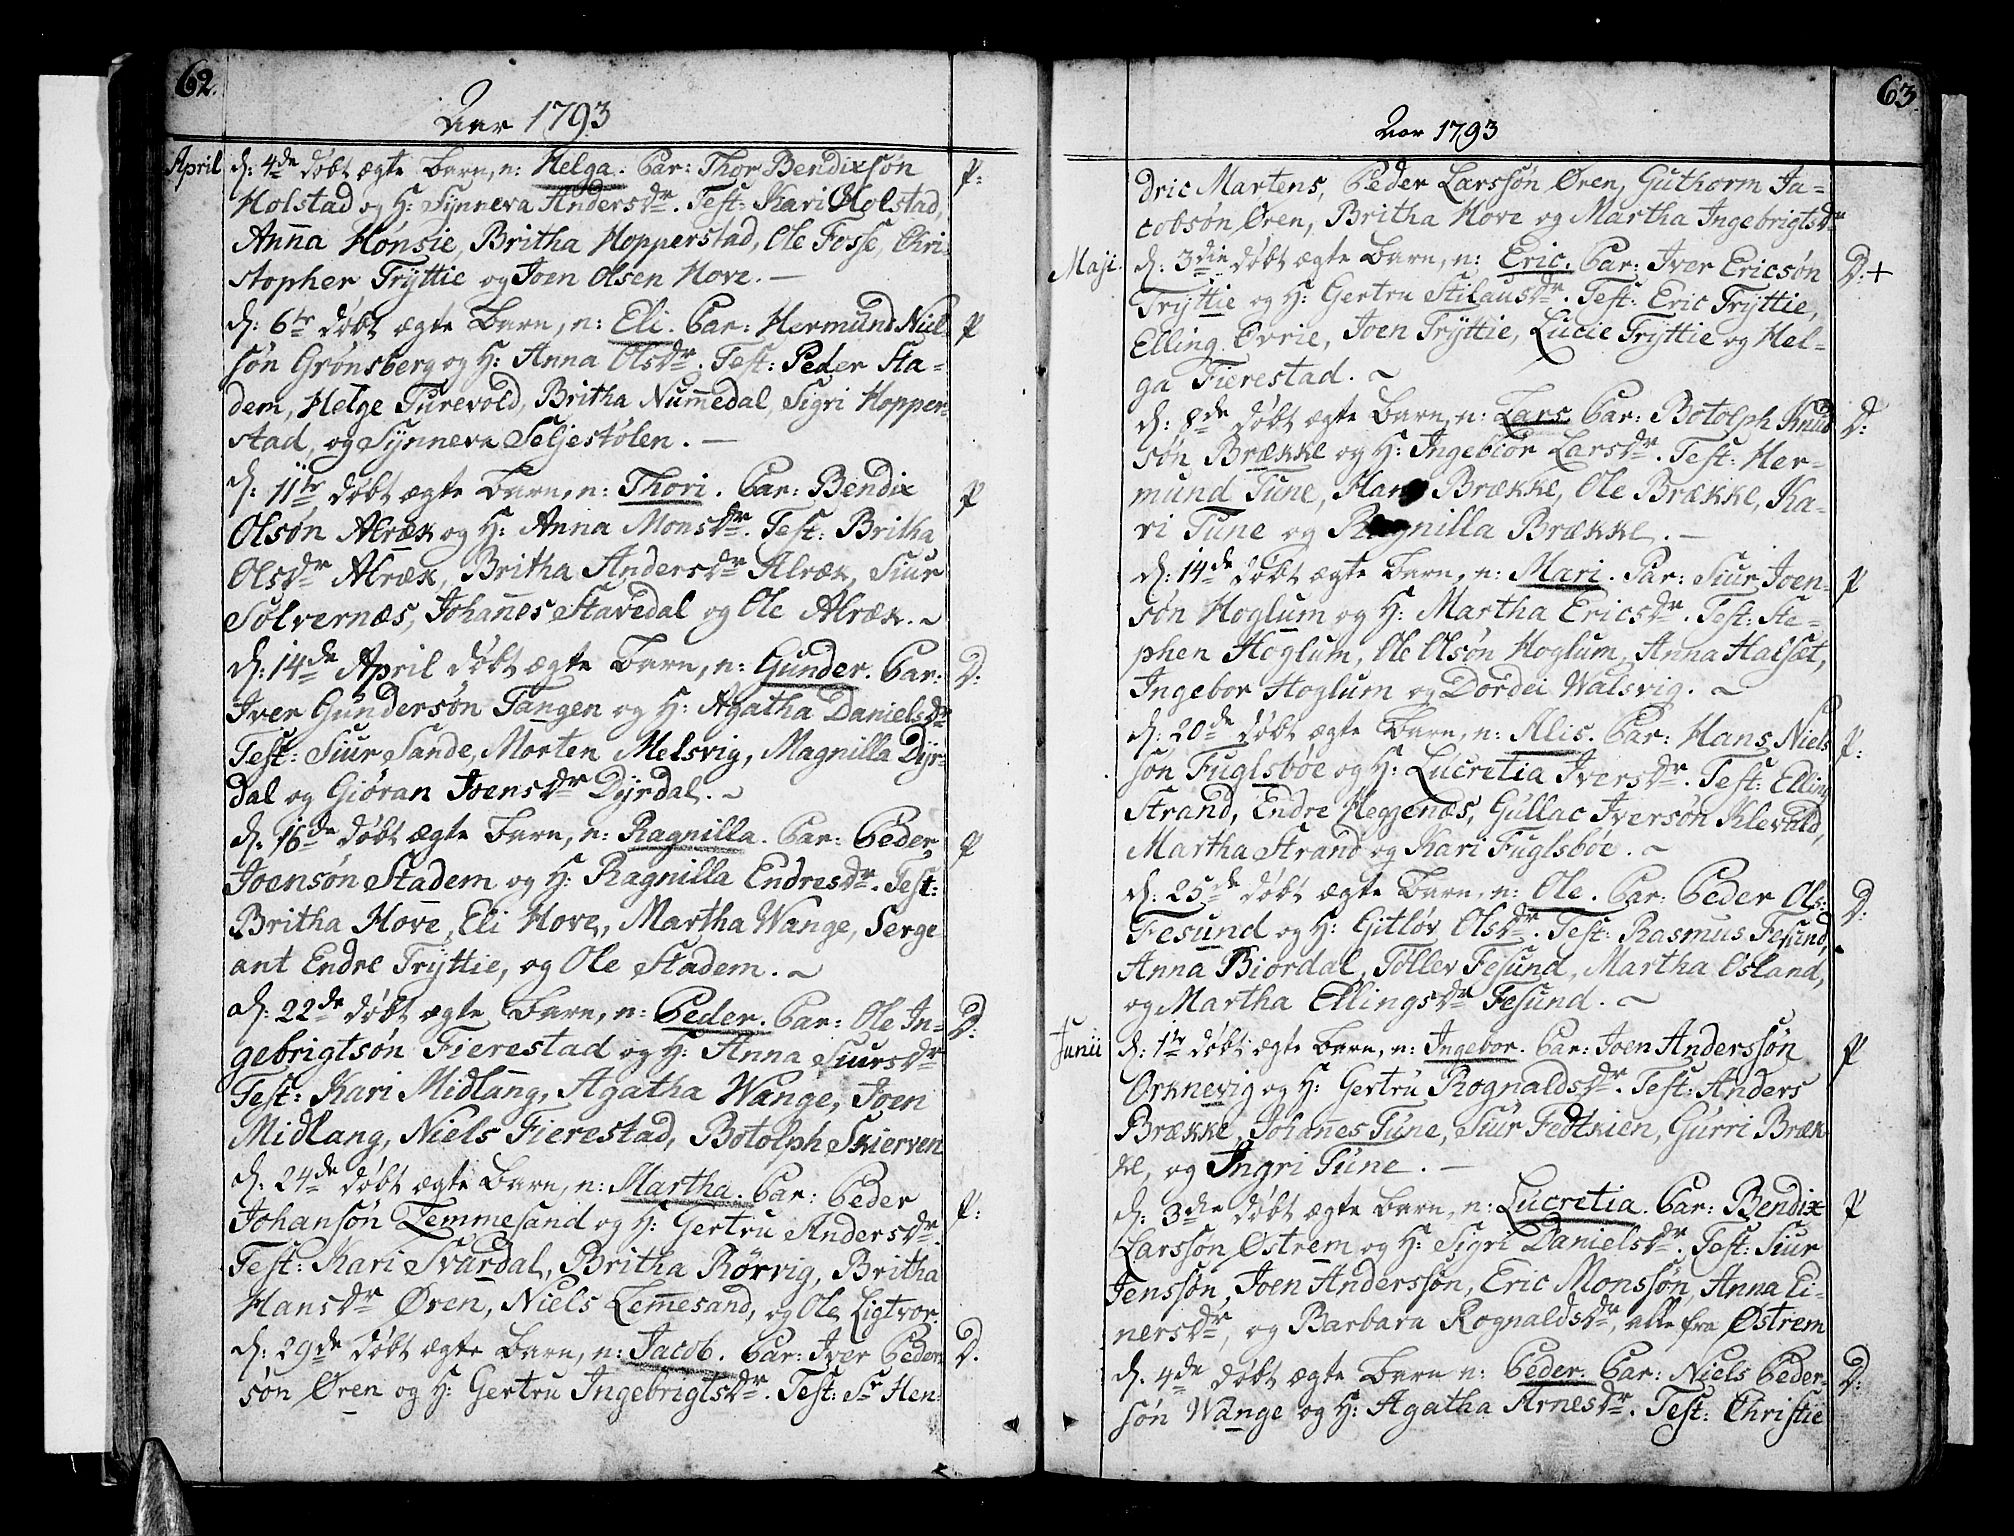 62.
Aar 1793
April d: 4de døbt ægte Barn, n: Helga. Par: Thor Bendixsøn P:
Holstad og H: Synneva Andersdr. Test: Kari Holstad,
Anna Hønsie, Britha Hopperstad, Ole Fosse, Chri-
stopher Tryttie og Joen Olsen Hove. —
d: 6te døbt ægte Barn, n: Eli. Par: Hermund Niel- P
søn Grønsberg og H: Anna Olsdr. Test: Peder Sta-
dem, Helge Turevold, Britha Nummedal, Sigri Hopper-
stad, og Synneva Seljestølen. —
d: 11te døbt ægte Barn, n: Thori. Par: Bendix P
Olsøn Alræk og H: Anna Monsdr. Test: Britha
Olsdr Alræk, Britha Andersdr Alræk, Siur
Solvernæs, Johannes Stavedal og Ole Alræk. ~
d: 14de April døbt ægte Barn, n: Gunder. Par: D:
Iver Gundersøn Tangen og H: Agatha Danielsdr
Test: Siur Sande, Morten Melsvig, Magnilla Dyr-
dal og Giøran Joensdr Dyrdal. ~
d: 16de døbt ægte Barn, n: Ragnilla. Par: Peder P
Joensøn Stadem og H: Ragnilla Endresdr. Test:
Britha Hove, Eli Hove, Martha Wange, Serge
ant Endre Tryttie, og Ole Stadem. ~
d: 22de døbt ægte Barn, n: Peder. Par: Ole In- D:
gebrigtsøn Fierestad og H: Anna Siursdr
Test: Kari Midlang, Agatha Wange, Joen
Midlang, Niels Fierestad, Botolph Skierven
d: 24de døbt ægte Barn, n: Martha. Par: Peder P:
Johansøn Lemmesand og H: Gertru Andersdr.
Test: Kari Svardal, Britha Rörvig, Britha
Hansdr Øren, Niels Lemmesand, og Ole Ligtvor.
d: 29de døbt ægte Barn, n: Jacob. Par: Iver Peder D.
søn Øren og H: Gertru Ingebrigtsdr. Test: Sr Hen-
63
Aar 1793
dric Martens, Peder Larssøn Øren, Guthorm Ja-
cobsøn Øren, Britha Hove og Martha Ingebrigtsdr
Maji. d: 3die døbt ægte Barn, n: Eric. Par: Iver Ericsøn D: +
Tryttie og H: Gertru Stilausdr. Test: Eric Tryttie,
Elling Øvrie, Joen Tryttie, Lucie Tryttie og Hel-
ga Fierestad. ~
d: 8de døbt ægte Barn, n: Lars. Par: Botolph Knud D:
søn Brække og H: Ingebor Larsdr. Test: Her-
mund Tune, Hans Brække, Ole Brække, Ka-
ri Tune og Ragnilla Brække. —
d: 14de døbt ægte Barn, n: Mari. Par: Siur Joen- P
søn Hoglum og H: Martha Ericsdr. Test: Ste-
phen Hoglum, Ole Olsøn Hoglum, Anna Halset,
Ingebor Hoglum og Dordei Walsvig. ~
d: 20de døbt ægte Barn, n: Alis. Par: Hans Niels P:
søn Fuglsbøe og H: Lucretia Iversdr. Test: Elling
Strand, Endre Heggenæs, Gullac Iversøn Klevold,
Martha Strand og Kari Fuglsbøe. ~
d: 25de døbt ægte Barn, n: Ole. Par: Peder Ols: D:
Fesund og H: Gitløv Olsdr. Test: Rasmus Fesund,
Anna Biordal, Tollev Fesund, Martha Osland,
og Martha Ellingsdr Fesund. ~
Junii d: 1te døbt ægte Barn, n: Ingebor. Par: Joen Anderssøn P
Orknevig og H: Gertru Rognaldsdr. Test: Anders
Brække, Johanes Tune, Siur Fedtkien, Gurri Bræk-
ke, og Ingri Tune. —
d: 3die døbt ægte Barn, n: Lucretia. Par: Bendix P
Larssøn Østrem og H: Sigri Danielsdr. Test: Siur
Jenssøn, Joen Anderssøn, Eric Monssøn, Anna Ei-
nersdr, og Barbara Rognaldsdr, alle fra Østrem
d: 4de døbt ægte Barn n: Peder. Par: Niels Peder- D:
søn Wange og H: Agatha Arnesdr. Test: Christie